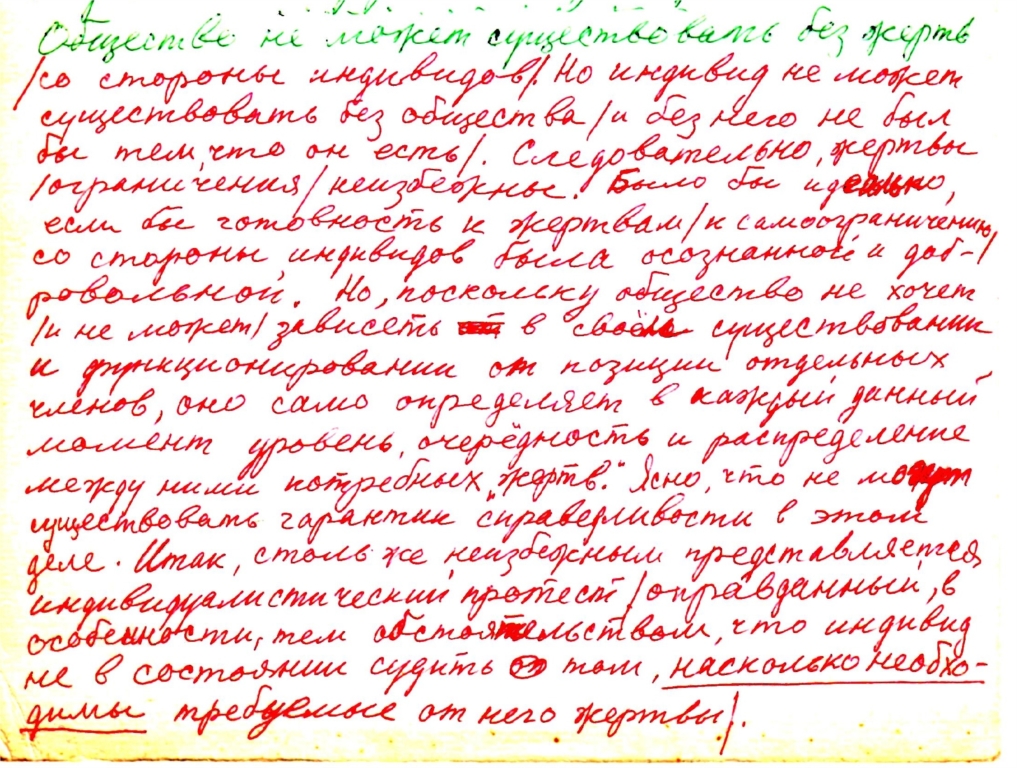 Общество не может существовать без жертв
/со стороны индивидов/. Но индивид не может
существовать без общества /и без него не был
бы тем, что он есть/. Следовательно, жертвы
/ограничения/ неизбежны. Было бы идеально,
если бы готовность к жертвам /к самоограничению/
со стороны индивидов была осознанной и доб-
ровольной. Но, поскольку общество не хочет
/и не может/ зависеть в своём существовании
и функционировании от позиции отдельных
членов, оно само определяет в каждый данный
момент уровень, очерёдность и распределение
между ними потребных „жертв“. Ясно, что не могут
существовать гарантии справедливости в этом
деле. Итак, столь же неизбежным представляется
индивидуалистический протест /оправданный, в
особенности, тем обстоятельством, что индивид
не в состоянии судить о том, насколько необхо-
димы требуемые от него жертвы/.